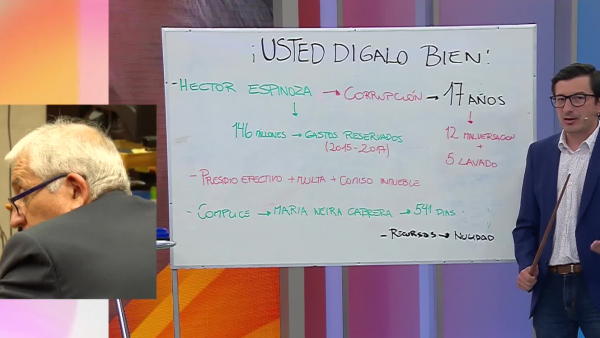 ¡USTED DIGALO BIEN!
- HECTOR ESPINOZA → CORRUPCIÓN → 17 AÑOS
146 MILLONES → GASTOS RESERVADOS
(2015-2017)
12 MALVERSACION
+
5 LAVADO
- PRESIDIO EFECTIVO + MULTA + COMISO INMUEBLE
- COMPLICE → MARIA NEIRA CABRERA → 541 DIAS
- RECURSOS → NULIDAD